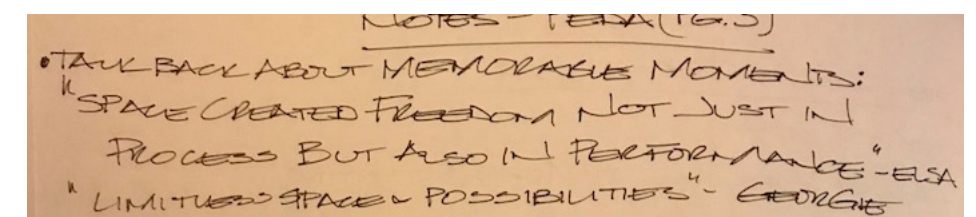 NOTES - TEDA (PG.3)
• TALK BACK ABOUT MEMORABLE MOMENTS:
"SPACE CREATED FREEDOM NOT JUST IN
PROCESS BUT ALSO IN PERFORMANCE" - ELSA
"LIMITLESS SPACE & POSSIBILITIES" - GEORGIE